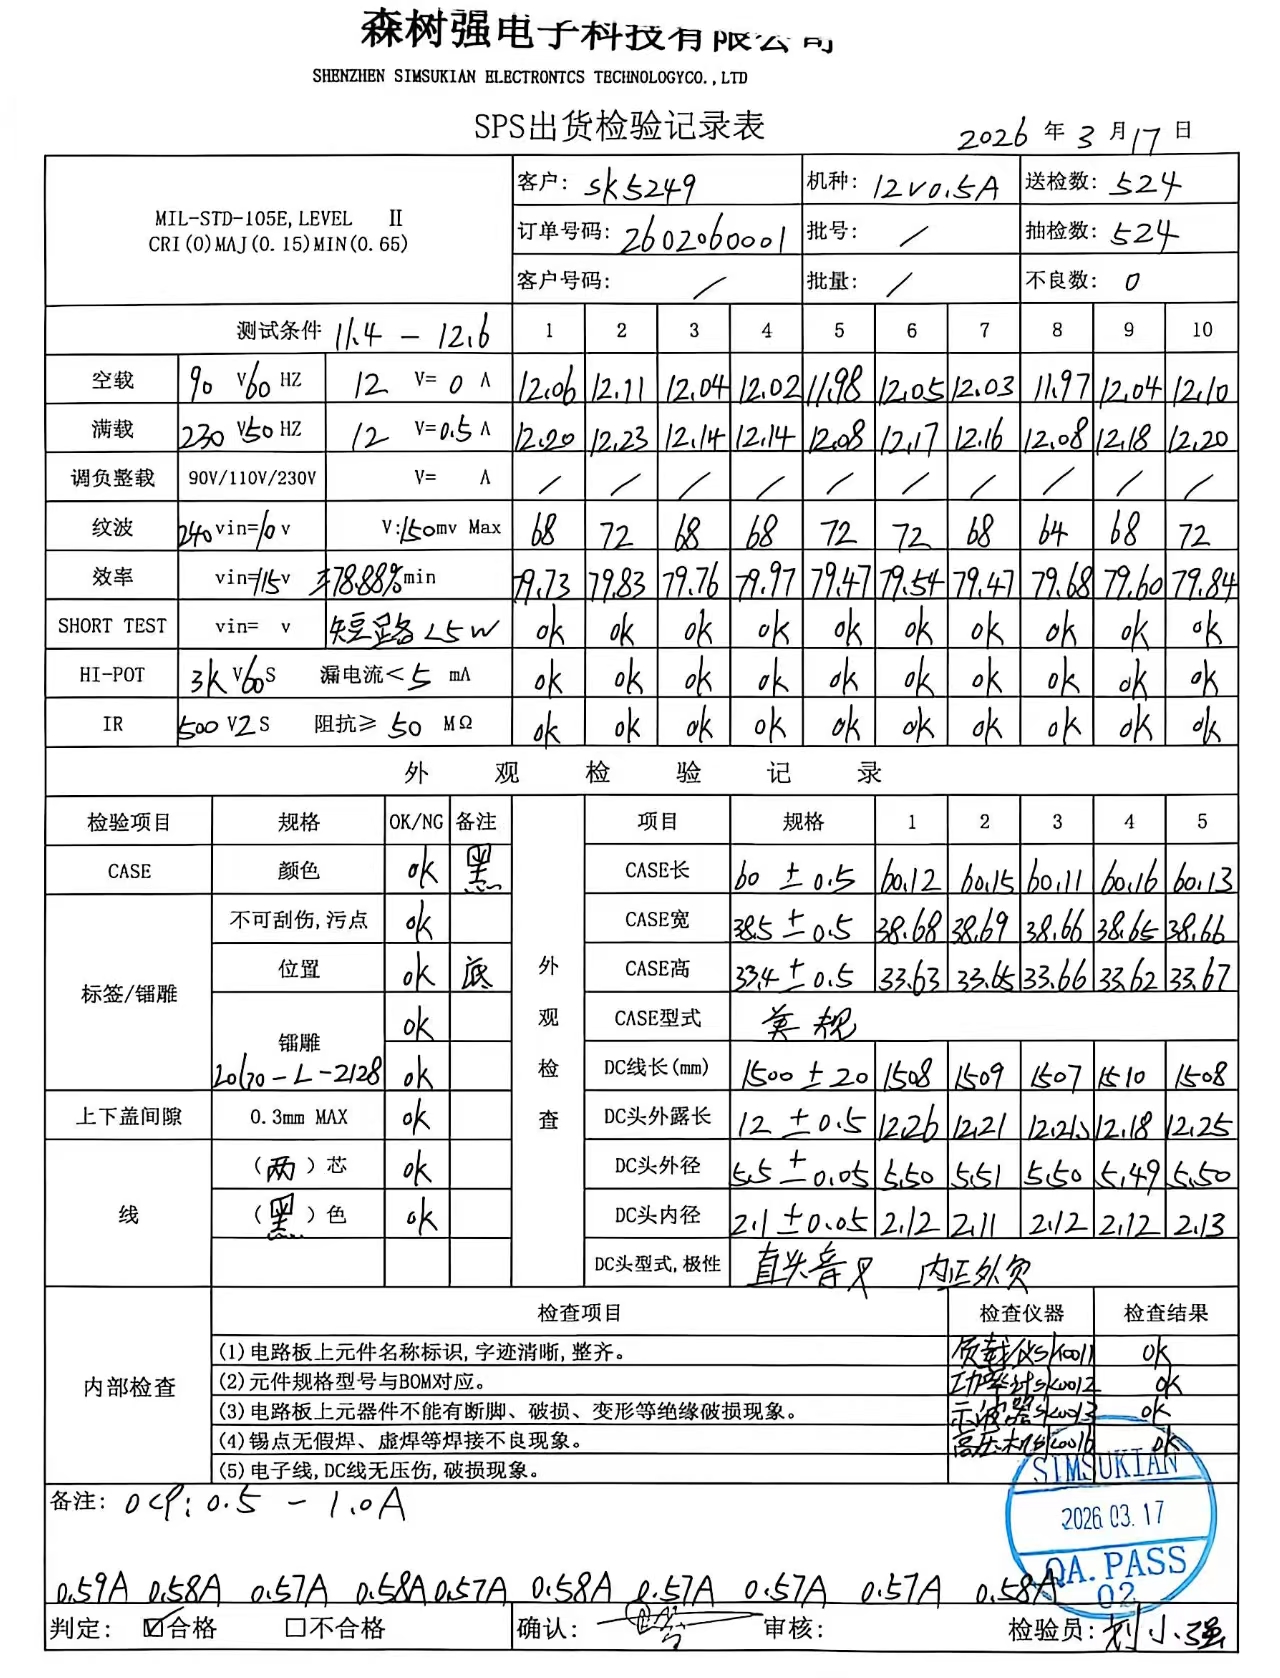 森树强电子科技有限公司
SHENZHEN SIMSUKIAN ELECTRONTCS TECHNOLOGYCO.,LTD
SPS出货检验记录表 2026 年 3 月 17 日
MIL-STD-105E,LEVEL Ⅱ
CRI(0)MAJ(0.15)MIN(0.65)
客户: SK5249 机种: 12V0.5A 送检数: 524
订单号码: 2602060001 批号: / 抽检数: 524
客户号码: / 批量: / 不良数: 0
测试条件 11.4 - 12.6 1 2 3 4 5 6 7 8 9 10
空载 90 V 60 HZ 12 V= 0 A 12.06 12.11 12.04 12.02 11.98 12.05 12.03 11.97 12.04 12.10
满载 230 V 50 HZ 12 V= 0.5 A 12.20 12.23 12.14 12.14 12.08 12.17 12.16 12.08 12.18 12.20
调负整载 90V/110V/230V V= A / / / / / / / / / /
纹波 240 vin=10 v V:150mv Max 68 72 68 68 72 72 68 64 68 72
效率 vin=115v ≥78.88%min 79.73 79.83 79.76 79.97 79.47 79.54 79.47 79.68 79.60 79.84
SHORT TEST vin= v 短路<5W ok ok ok ok ok ok ok ok ok ok
HI-POT 3K V 60 S 漏电流< 5 mA ok ok ok ok ok ok ok ok ok ok
IR 500 V 2 S 阻抗≥ 50 MΩ ok ok ok ok ok ok ok ok ok ok
外 观 检 验 记 录
检验项目 规格 OK/NG 备注 项目 规格 1 2 3 4 5
CASE 颜色 ok 黑 CASE长 60 ±0.5 60.12 60.15 60.11 60.16 60.13
不可刮伤,污点 ok CASE宽 38.5 ±0.5 38.68 38.69 38.66 38.65 38.66
标签/镭雕 位置 ok 底 外 CASE高 33.4 ±0.5 33.63 33.65 33.66 33.62 33.67
ok 观 CASE型式 美规
镭雕 20170-L-2128 ok 检 DC线长(mm) 1500 ±20 1508 1509 1507 1510 1508
上下盖间隙 0.3mm MAX ok 查 DC头外露长 12 ±0.5 12.26 12.21 12.18 12.25
线 (两)芯 ok DC头外径 5.5 ±0.05 5.50 5.51 5.50 5.49 5.50
(黑)色 ok DC头内径 2.1 ±0.05 2.12 2.11 2.12 2.12 2.13
DC头型式,极性 直头音叉 内正外负
内部检查 检查项目 检查仪器 检查结果
(1)电路板上元件名称标识,字迹清晰,整齐。 负载仪SK0011 ok
(2)元件规格型号与BOM对应。 功率计SK0012 ok
(3)电路板上元器件不能有断脚、破损、变形等绝缘破损现象。 示波器SK0013 ok
(4)锡点无假焊、虚焊等焊接不良现象。 高压机SK0016 ok
(5)电子线,DC线无压伤,破损现象。
SIMSUKIAN
2026.03.17
QA.PASS
02
备注: OCP: 0.5 - 1.0A
0.59A 0.58A 0.57A 0.58A 0.57A 0.58A 0.57A 0.57A 0.57A 0.58A
判定: ☑合格 □不合格 确认: 审核: 检验员: 刘小强